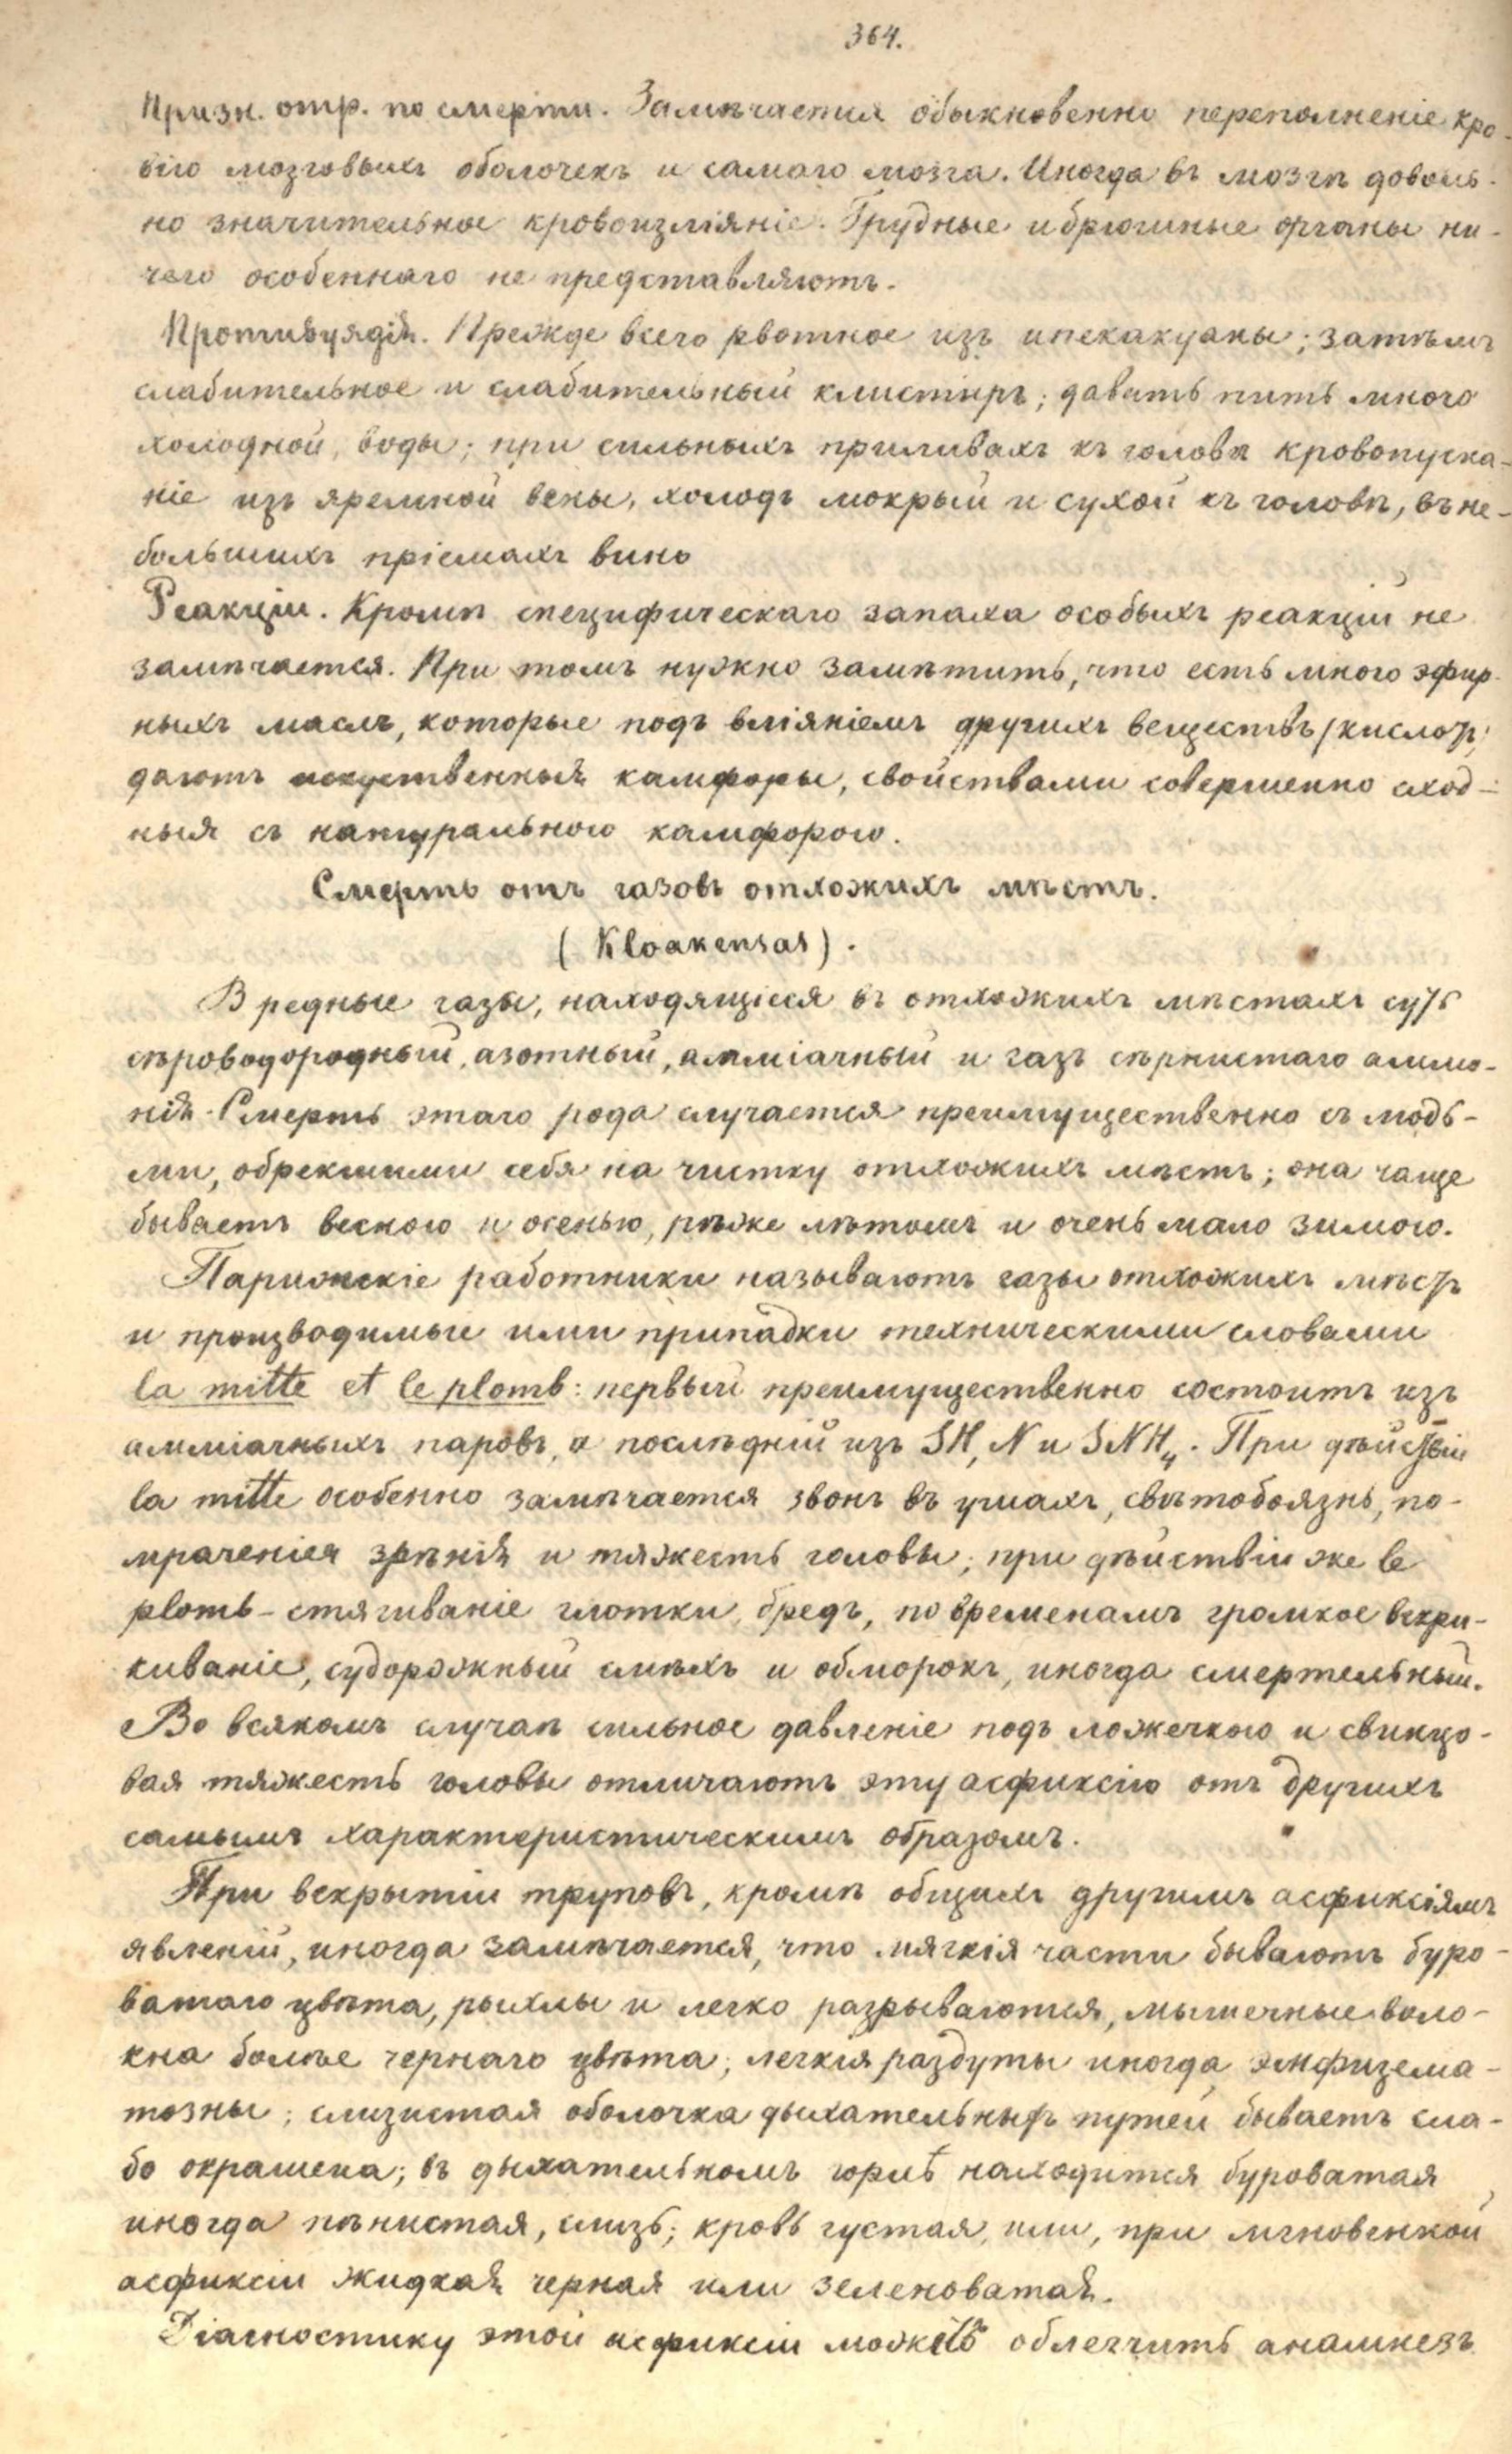 364.
Призн. отр. по смерти. Замѣчается обыкновенно переполненіе кро-
вію мозговыхъ оболочекъ и самаго мозга. Иногда въ мозгѣ доволь-
но значительное кровоизліяніе. Грудные и брюшные органы ни-
чего особеннаго не представляютъ.
Противуядія. Прежде всего рвотное изъ ипекакуаны; затѣмъ
слабительное и слабительный клистиръ; давать пить много
холодной воды; при сильныхъ приливахъ къ головѣ кровопуска-
ніе изъ яремной вены, холодъ мокрый и сухой къ головѣ, въ не-
большихъ пріемахъ вино
Реакціи. Кромѣ специфическаго запаха особыхъ реакцій не
замѣчается. При томъ нужно замѣтить, что есть много эфир-
ныхъ маслъ, которые подъ вліяніемъ другихъ веществъ (кислотъ)
даютъ искуственныя камфоры, свойствами совершенно сход-
ныя съ натуральною камфорою.
Смерть отъ газовъ отхожихъ мѣстъ.
(Kloakensas).
Вредные газы, находящіеся въ отхожихъ мѣстахъ суть
сѣроводородный, азотный, амміачный и газъ сѣрнистаго аммо-
нія. Смерть этаго рода случается преимущественно съ людь-
ми, обрекшими себя на чистку отхожихъ мѣстъ; она чаще
бываетъ весною и осенью, рѣже лѣтомъ и очень мало зимою.
Парижскіе работники называютъ газы отхожихъ мѣстъ
и производимые ими припадки техническими словами
la mitte et le plomb: первый преимущественно состоитъ изъ
амміачныхъ паровъ, а послѣдній изъ SH, N и SNH4. При дѣйствіи
la mitte особенно замѣчается звонъ въ ушахъ, свѣтобоязнь, по-
мраченія зрѣнія и тяжесть головы; при дѣйствіи же le
plomb - стягиваніе глотки, бредъ, по временамъ громкое вскри-
киваніе, судорожный смѣхъ и обморокъ, иногда смертельный.
Во всякомъ случаѣ сильное давленіе подъ ложечкою и свинцо-
вая тяжесть головы отличаютъ эту асфиксію отъ другихъ
самымъ характеристическимъ образомъ.
При вскрытіи труповъ, кромѣ общихъ другимъ асфиксіямъ
явленій, иногда замѣчается, что мягкія части бываютъ буро-
ватаго цвѣта, рыхлы и легко разрываются, мышечные воло-
кна болѣе чернаго цвѣта; легкія раздуты иногда эмфизема-
тозны; слизистая оболочка дыхательныхъ путей бываетъ сла-
бо окрашена; въ дыхательномъ горлѣ находится буроватая
иногда пѣнистая, слизь; кровь густая, или, при мгновенной
асфиксіи жидкая черная или зеленоватая.
Діагностику этой асфиксіи можетъ облегчить анамнезъ